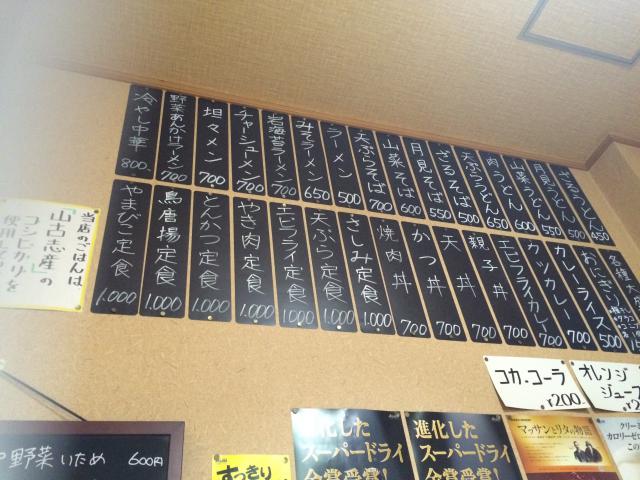 冷やし中華 800
野菜あんかけラーメン 700
坦々メン 700
チャーシューメン 700
岩海苔ラーメン 700
みそラーメン 650
ラーメン 500
天ぷらそば 700
山菜そば 600
月見そば 550
ざるそば 500
天ぷらうどん 650
肉うどん 600
山菜うどん 550
月見うどん 550
ざるうどん 450
やまびこ定食 1.000
鳥唐揚定食 1.000
とんかつ定食 1.000
やき肉定食 1.000
エビフライ定食 1.000
天ぷら定食 1.000
さしみ定食 1.000
焼肉丼 700
かつ丼 700
天丼 700
親子丼 700
エビフライカレー 700
カツカレー 700
カレーライス 500
おにぎり
各種
当店のごはんは
「山古志産」の
コシヒカリを
使用して
コカ・コーラ
¥200
オレンジ
ジュース
野菜いため 600円
すっきり
進化した
スーパードライ
金賞受賞!
進化した
スーパードライ
金賞受賞!
マッサンとリタの物語
クリーミ
カロリーゼロ
この